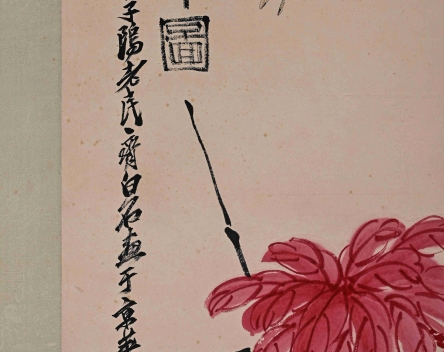 圖
子隖老民齊白石畫于京華